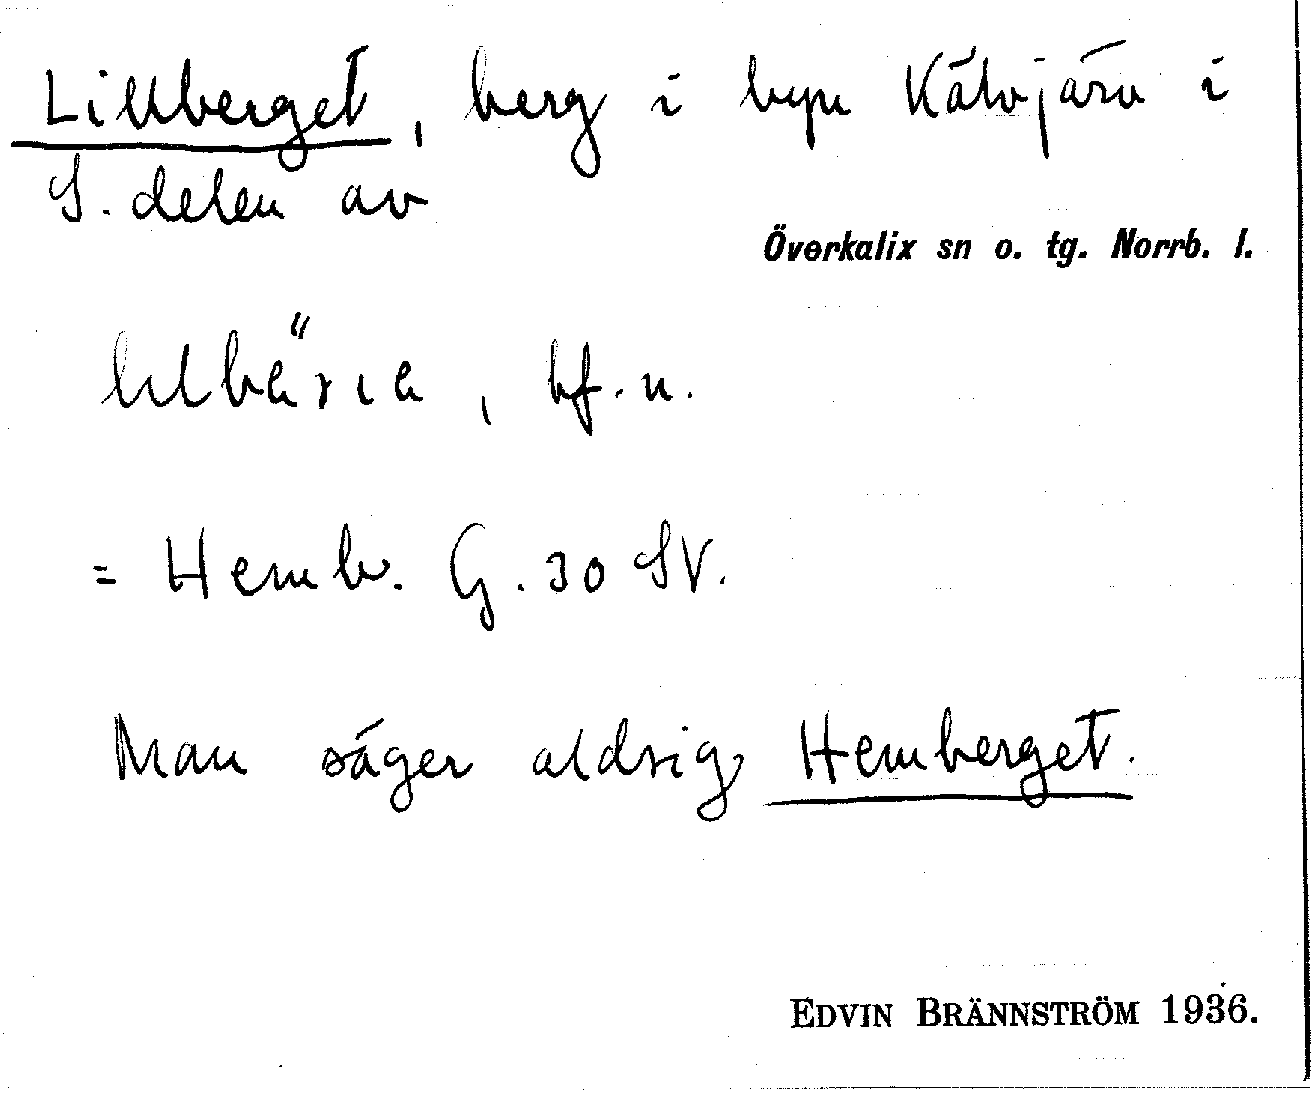 Lillberget, berg i byn Kälvjärv i
S. delen av
Överkalix sn o. tg. Norrb. l.
, bf. n.
= Hemb. G. 30 SV.
Man säger aldrig Hemberget.
EDVIN BRÄNNSTRÖM 1936.